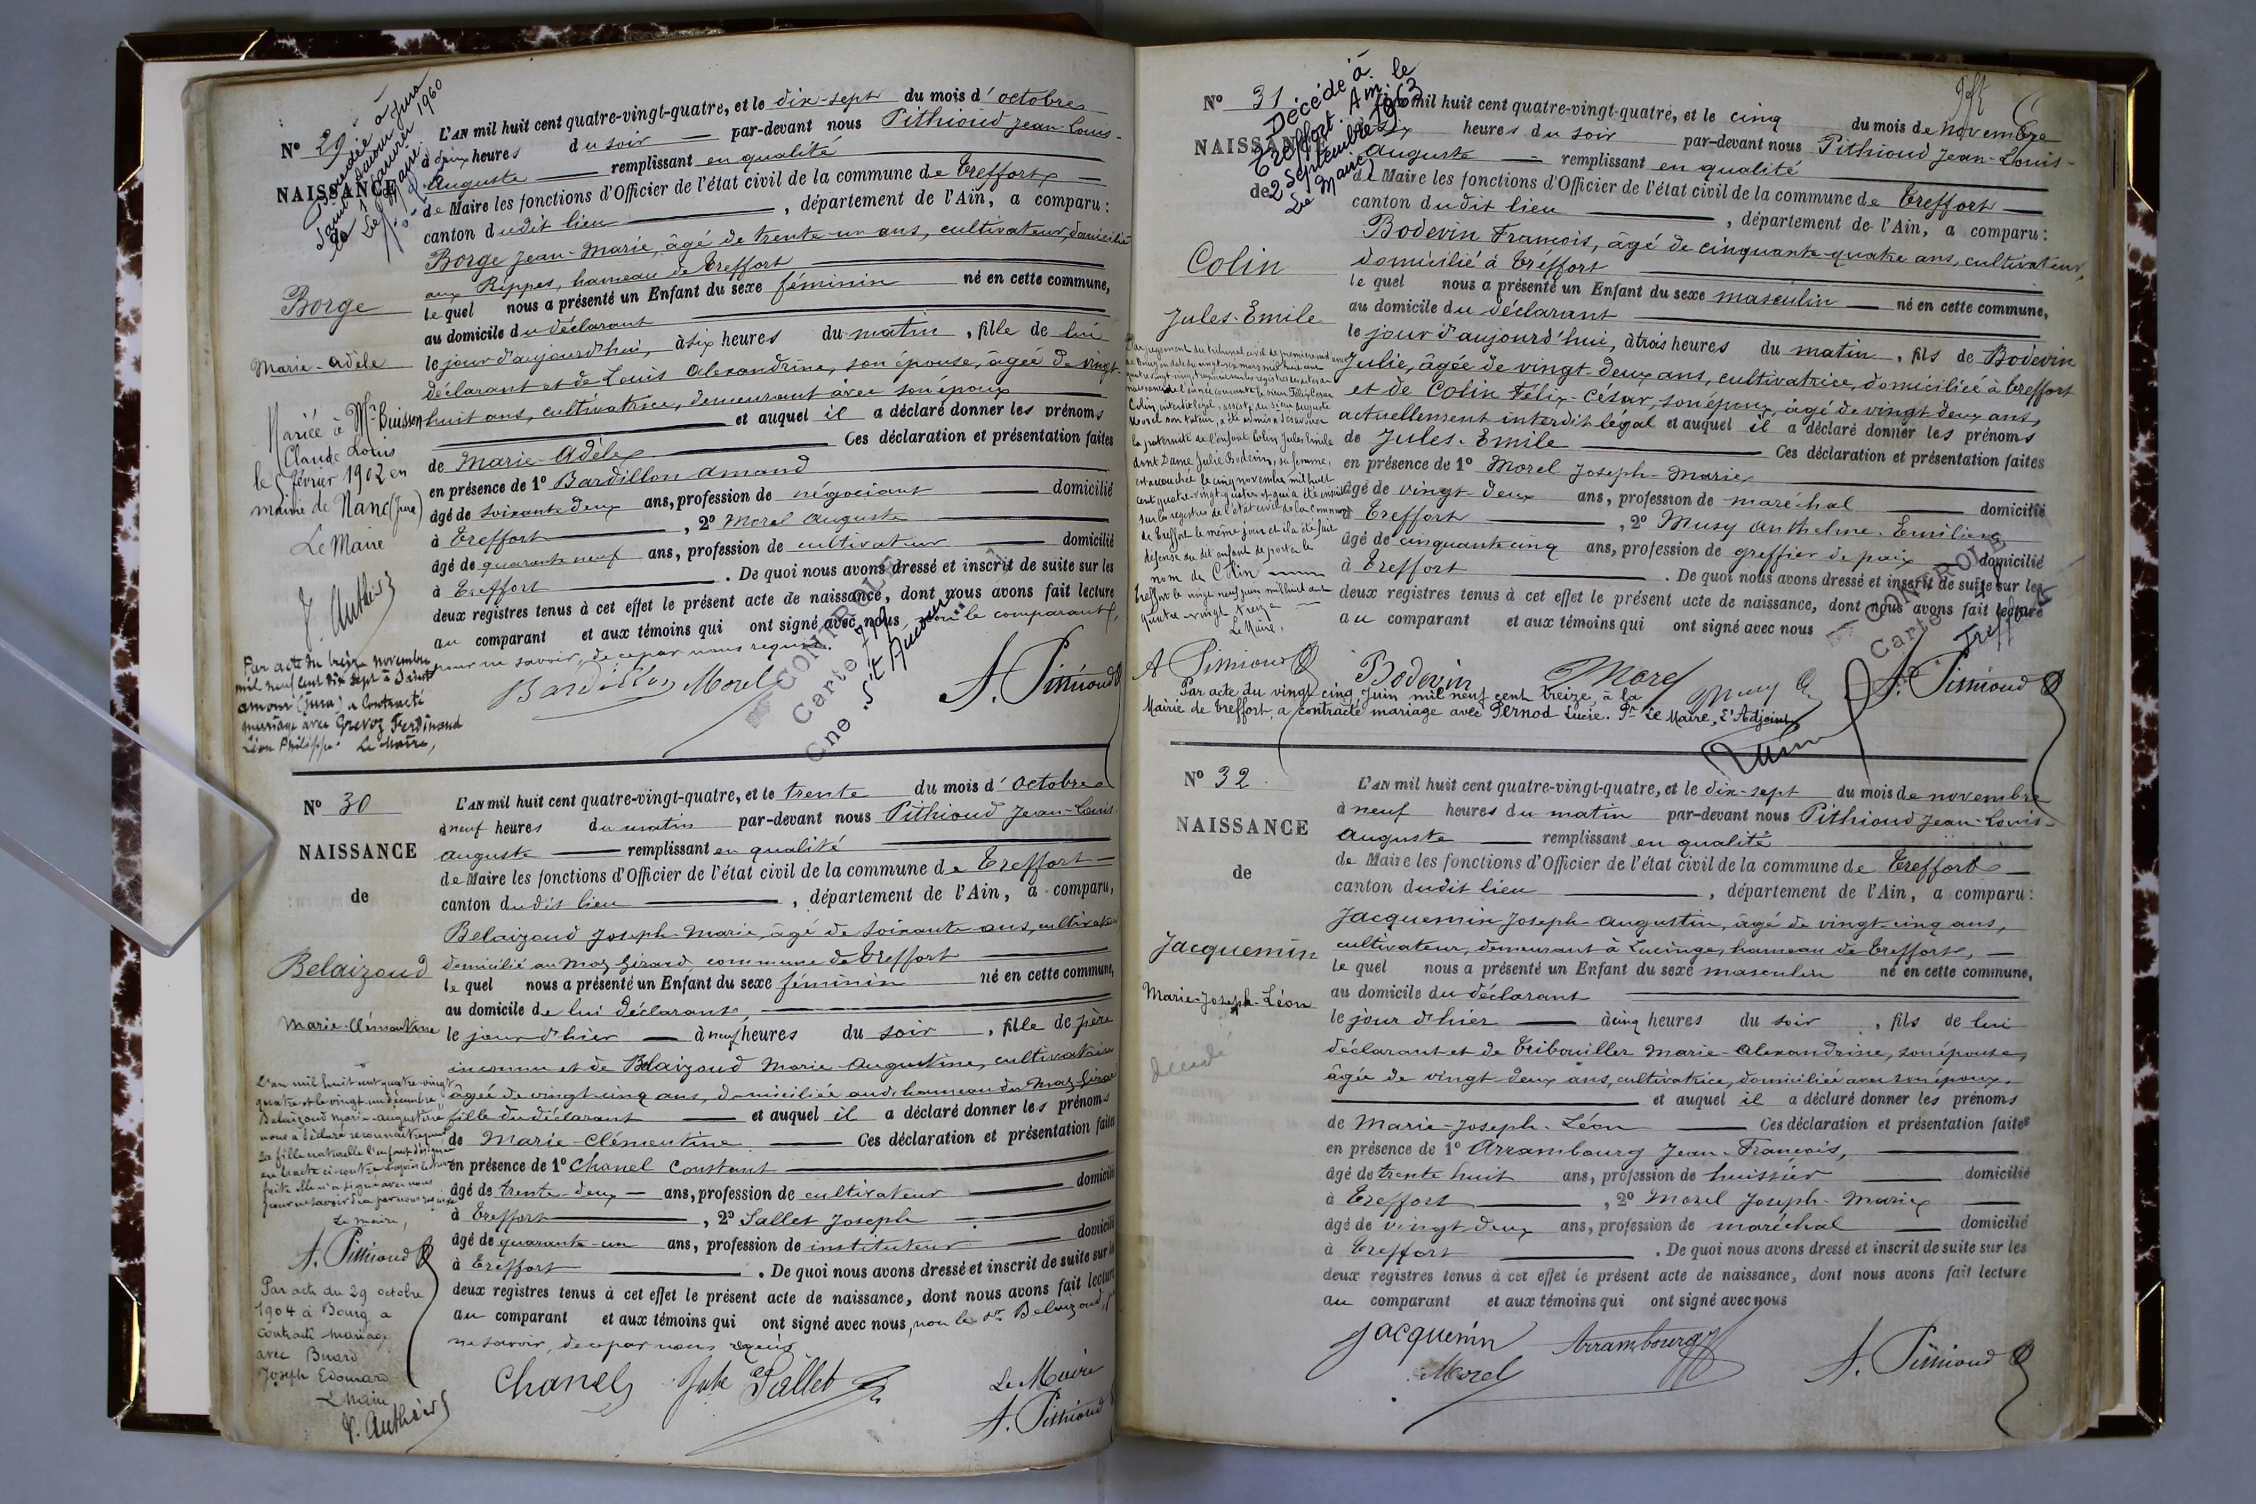 Nº 29
NAISSANCE
Borge
Marie-Adèle
Mariée à Mr Buisson
Claude Louis
le 8 février 1902 en
mairie de Nanc (Jura)
Le Maire
Par acte du treize novembre
mil neuf cent dix sept à Saint
amour (Jura) a contracté
mariage avec Grevoz Ferdinand
Léon Philippe. Le Maire,
L'AN mil huit cent quatre-vingt-quatre, et le dix-sept du mois d'octobre
à deux heures du soir par-devant nous Pithioud Jean-Louis-
Auguste remplissant en qualité
de Maire les fonctions d'Officier de l'état civil de la commune de Treffort
canton dudit lieu, département de l'Ain, a comparu:
Borge Jean-Marie, âgé de trente-un ans, cultivateur, domicilié
aux Rippes, hameau de Treffort
le quel nous a présenté un Enfant du sexe féminin né en cette commune,
au domicile du déclarant
le jour d'aujourd'hui, à six heures du matin, fille de lui
déclarant et de Louis Alexandrine, son épouse, âgée de vingt-
huit ans, cultivatrice, demeurant avec son époux
et auquel il a déclaré donner les prénoms
de Marie-Adèle Ces déclaration et présentation faites
en présence de 1º Bardillon Amand
âgé de soixante deux ans, profession de négociant domicilié
à Treffort, 2º Morel Auguste
âgé de quarante neuf ans, profession de cultivateur domicilié
à Treffort. De quoi nous avons dressé et inscrit de suite sur les
deux registres tenus à cet effet le présent acte de naissance, dont nous avons fait lecture
au comparant et aux témoins qui ont signé avec nous, non le comparant,
pour ne savoir, de ce par nous requis.
Bardillon Morel A. Pithioud
CONTROLE
Carte
Cne St Amour
Nº 30
NAISSANCE
de
Belaizoud
Marie-Clémentine
L'an mil huit cent quatre-vingt
quatre et le vingt un décembre
Belaizoud Marie-Augustine
nous a déclaré reconnaître pour
sa fille naturelle l'enfant désignée
en l'acte ci-contre. Lecture
faite elle n'a signé avec nous
pour ne savoir de ce par nous requise
Le maire,
A. Pithioud
Par acte du 29 octobre
1904 à Bourg a
contracté mariage
avec Buard
Joseph Edouard
Le Maire
L'AN mil huit cent quatre-vingt-quatre, et le trente du mois d'octobre
à neuf heures du matin par-devant nous Pithioud Jean-Louis-
Auguste remplissant en qualité
de Maire les fonctions d'Officier de l'état civil de la commune de Treffort
canton dudit lieu, département de l'Ain, a comparu,
Belaizoud Joseph-Marie, âgé de soixante ans, cultivateur
domicilié au Maz Girard commune de Treffort
le quel nous a présenté un Enfant du sexe féminin né en cette commune,
au domicile de lui déclarant,
le jour d'hier à neuf heures du soir, fille de père
inconnu et de Belaizoud Marie-Augustine, cultivatrice
âgée de vingt-cinq ans, domiciliée audit hameau du Maz Girard
fille du déclarant et auquel il a déclaré donner les prénoms
de Marie-Clémentine Ces déclaration et présentation faites
en présence de 1º Chanel Constant
âgé de trente-deux ans, profession de cultivateur domicilié
à Treffort, 2º Sallet Joseph
âgé de quarante-un ans, profession de instituteur domicilié
à Treffort. De quoi nous avons dressé et inscrit de suite sur les
deux registres tenus à cet effet le présent acte de naissance, dont nous avons fait lecture
au comparant et aux témoins qui ont signé avec nous, non le sr Belaizoud, pr
ne savoir, de ce par nous requis
Chanel Sallet Le Maire
A. Pithioud
Nº 31
Décédé à
Treffort. Ain. le
2 Septembre 1963
Le Maire
NAISSANCE
de
Colin
Jules-Emile
Colin, interdit légal, assisté du sieur Auguste
Morel son tuteur, a été admis à désavouer
la paternité de l'enfant Colin Jules Emile
dont Dame Julie Bodevin, sa femme,
est accouchée le cinq novembre mil huit
cent quatre-vingt-quatre et qui a été inscrit
sur le registre de l'état civil de la commune
de Treffort le même jour et il a été fait
défense au dit enfant de porter le
nom de Colin
Treffort le vingt neuf juin mil huit cent
quatre-vingt treize
Le Maire.
A Pithioud
L'AN mil huit cent quatre-vingt-quatre, et le cinq du mois de novembre
à six heures du soir par-devant nous Pithioud Jean-Louis-
Auguste remplissant en qualité
de Maire les fonctions d'Officier de l'état civil de la commune de Treffort
canton dudit lieu, département de l'Ain, a comparu:
Bodevin François, âgé de cinquante-quatre ans, cultivateur,
domicilié à Treffort
le quel nous a présenté un Enfant du sexe masculin né en cette commune,
au domicile du déclarant
le jour d'aujourd'hui, à trois heures du matin, fils de Bodevin
Julie, âgée de vingt-deux ans, cultivatrice, domiciliée à Treffort
et de Colin Félix-César, son époux, âgé de vingt deux ans,
actuellement interdit légal et auquel il a déclaré donner les prénoms
de Jules-Emile Ces déclaration et présentation faites
en présence de 1º Morel Joseph-Marie
âgé de vingt-deux ans, profession de maréchal domicilié
à Treffort, 2º Musy Anthelme-Emilien
âgé de cinquante cinq ans, profession de greffier de paix domicilié
à Treffort. De quoi nous avons dressé et inscrit de suite sur les
deux registres tenus à cet effet le présent acte de naissance, dont nous avons fait lecture
au comparant et aux témoins qui ont signé avec nous
Bodevin Morel Musy A. Pithioud
CONTROLE
Carte
Treffort
Par acte du vingt cinq Juin mil neuf cent treize, à la
Mairie de Treffort, a contracté mariage avec Pernod Lucie. Pr Le Maire, L'Adjoint
Nº 32
NAISSANCE
de
Jacquemin
Marie-Joseph-Léon
décédé
L'AN mil huit cent quatre-vingt-quatre, et le dix-sept du mois de novembre
à neuf heures du matin par-devant nous Pithioud Jean-Louis-
Auguste remplissant en qualité
de Maire les fonctions d'Officier de l'état civil de la commune de Treffort
canton dudit lieu, département de l'Ain, a comparu:
Jacquemin Joseph-Augustin, âgé de vingt-cinq ans,
cultivateur, demeurant à Lucinge, hameau de Treffort,
le quel nous a présenté un Enfant du sexe masculin né en cette commune,
au domicile du déclarant
le jour d'hier à cinq heures du soir, fils de lui
déclarant et de Tribouiller Marie-Alexandrine, son épouse,
âgée de vingt deux ans, cultivatrice, domiciliée avec son époux.
et auquel il a déclaré donner les prénoms
de Marie-Joseph-Léon Ces déclaration et présentation faites
en présence de 1º Arrambourg Jean-François,
âgé de trente huit ans, profession de huissier domicilié
à Treffort, 2º Morel Joseph-Marie
âgé de vingt deux ans, profession de maréchal domicilié
à Treffort. De quoi nous avons dressé et inscrit de suite sur les
deux registres tenus à cet effet le présent acte de naissance, dont nous avons fait lecture
au comparant et aux témoins qui ont signé avec nous
Jacquemin Arrambourg
Morel A. Pithioud